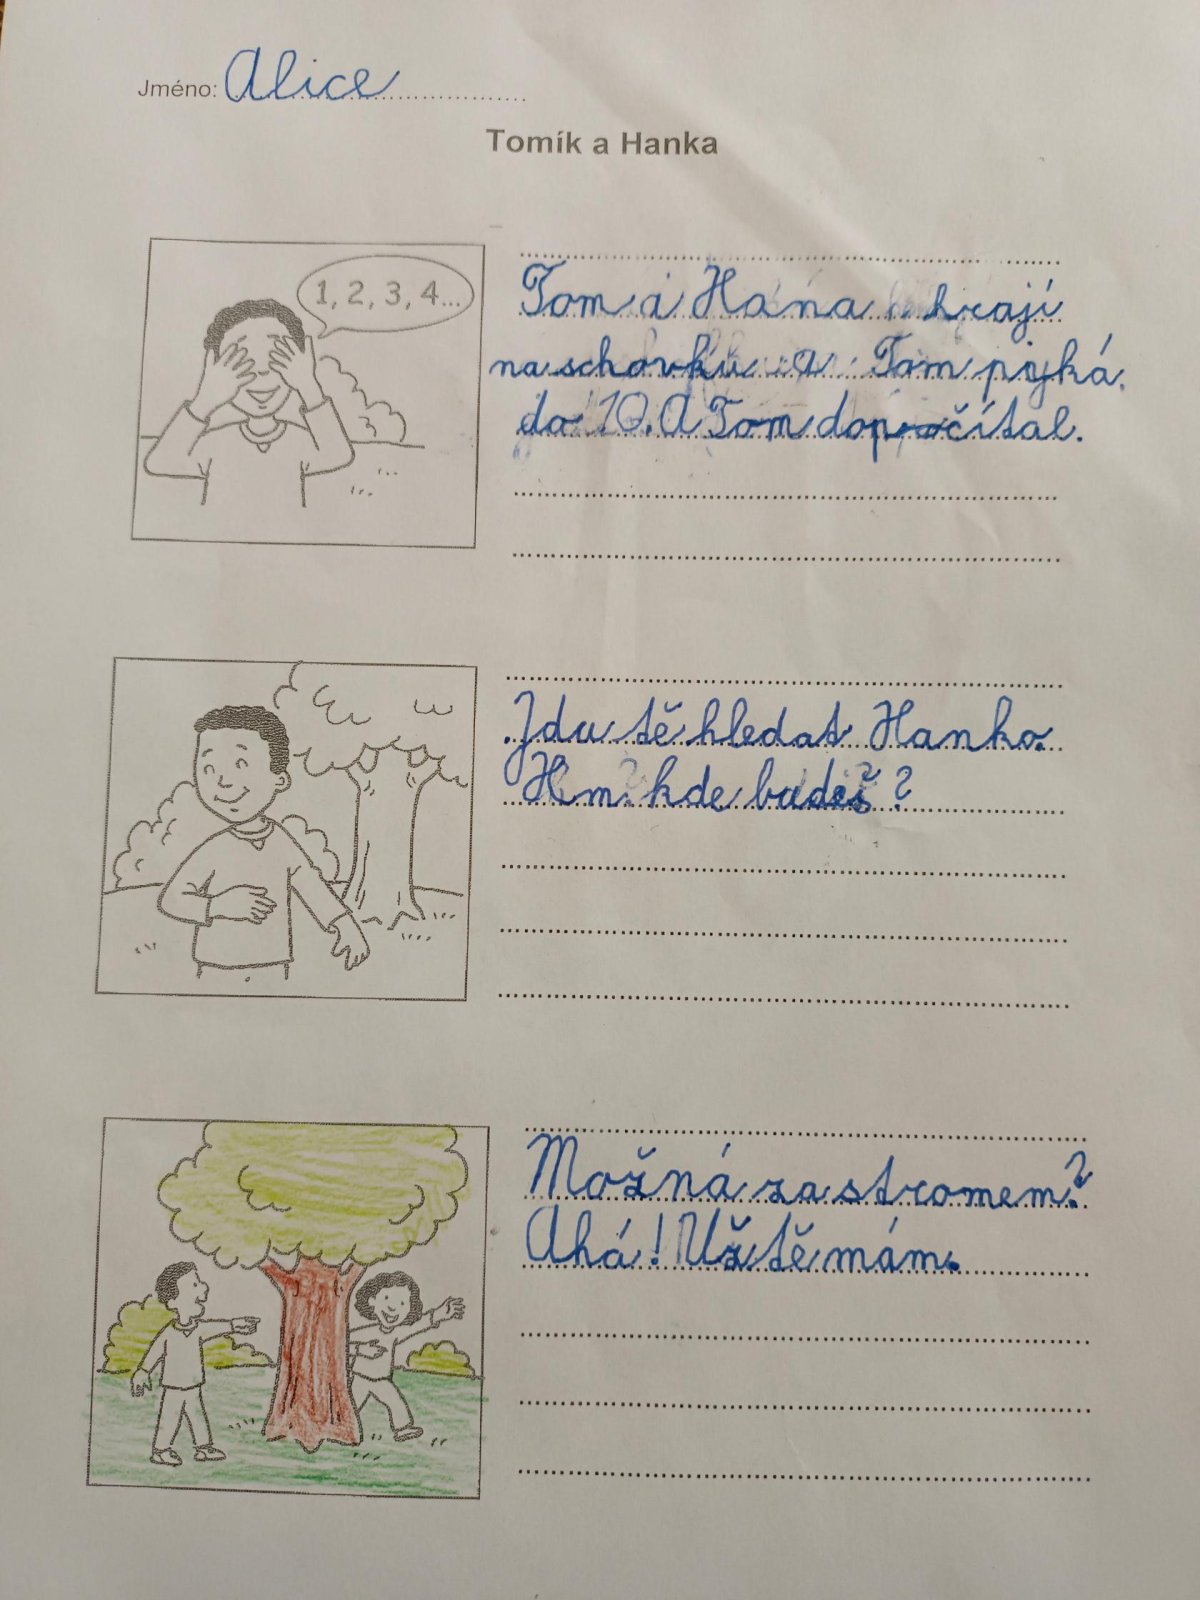 Jméno: Alice
Tomík a Hanka
1, 2, 3, 4...
Tom a Hana hrají
na schovku a Tom pyká.
do 10. A Tom dopočítal.
Jdu tě hledat Hanko.
Hm. kde budeš?
Možná za stromem?
Ahá! Už tě mám.